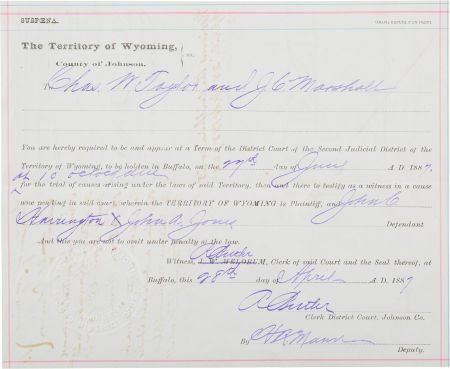 SUBPŒNA.
OMAHA REPUBLICAN PRINT.
The Territory of Wyoming, } ss.
County of Johnson.
To Chas. W. Taylor and J. C. Marshall
You are hereby required to be and appear at a Term of the District Court of the Second Judicial District of the
Territory of Wyoming, to be holden in Buffalo, on the 27th day of June A. D. 1887,
at 10 o'clock
for the trial of causes arising under the laws of said Territory, then and there to testify as a witness in a cause
now pending in said court, wherein the TERRITORY OF WYOMING is Plaintiff, and John C
Harrington & John A. Jones Defendant
And this you are not to omit under penalty of the law.
Witness, J. W. MELDRUM, Clerk of said Court and the Seal thereof, at
Buffalo, this 28th day of April A. D. 1887
Clerk District Court, Johnson Co.
By H R Mann
Deputy.